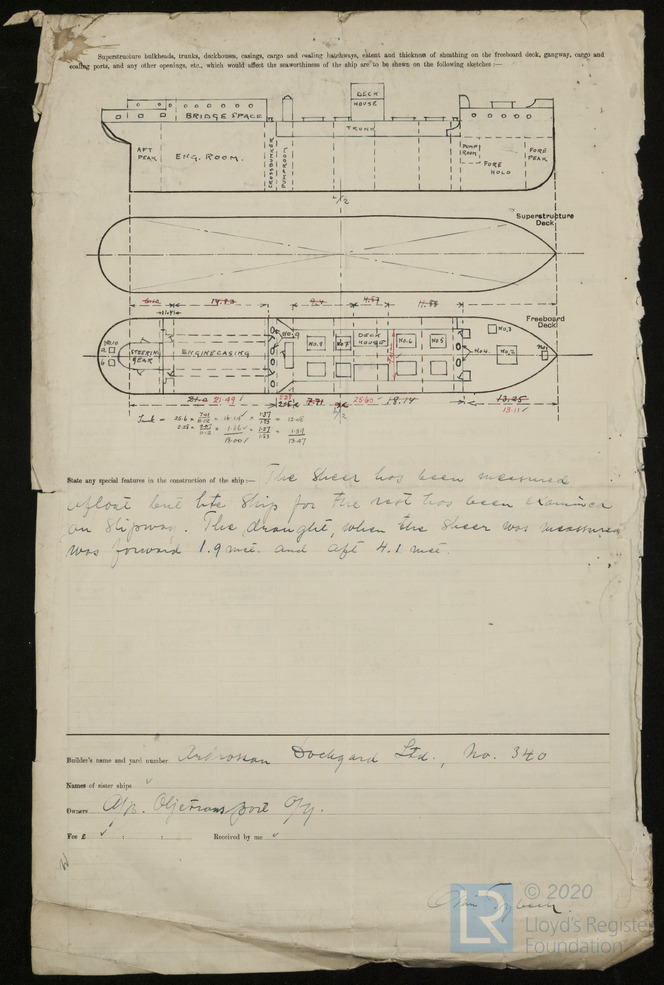 Superstructure bulkheads, trunks, deckhouses, casings, cargo and coaling hatchways, extent and thickness of sheathing on the freeboard deck, gangway, cargo and
coaling ports, and any other openings, etc., which would affect the seaworthiness of the ship are to be shewn on the following sketches:—
DECK
HOUSE
BRIDGE SPACE
TRUNK
AFT
PEAK
ENG. ROOM.
CROSSBUNKER
PUMP
ROOM
FORE
HOLD
FORE
PEAK
L/2
Superstructure
Deck
Freeboard
Deck
No.10
STEERING
GEAR
ENGINE CASING
No.9
No.8
No.7
DECK
HOUSE
No.6
No.5
No.4
No.3
No.2
No.1
21.49
7.71
25.60
18.14
13.25
13.11
L/2
State any special features in the construction of the ship:— The sheer has been measured
afloat but the ship for the rest has been examined
on slipway. The draught, when the sheer was measured
was forward 1.9 met. and aft 4.1 met.
Builder's name and yard number Ardrossan Dockyard Ltd., No. 340
Names of sister ships
Owners A/B. Oljetransport O/Y.
Fee £ : :
Received by me
LR
© 2020
Lloyd's Register
Foundation